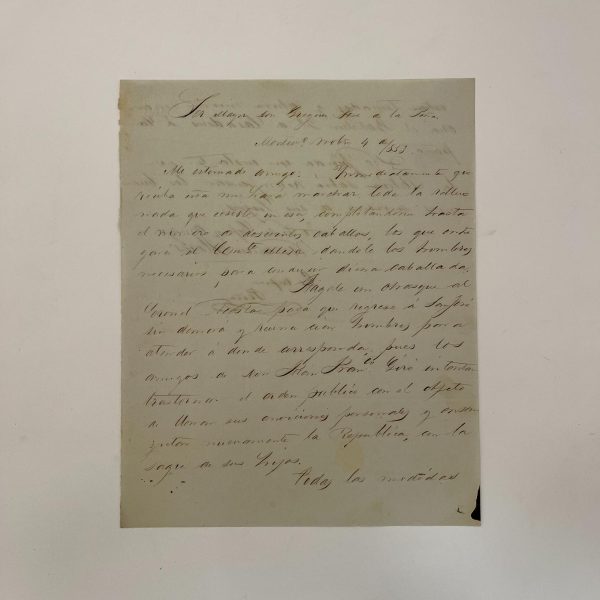 Sr. Mayor don Gregorio José de la
Montevo. Nvbre 4 de 1853
Mi estimado amigo: Inmediatamente que
reciba esta me hará marchar toda la
nada que existe en esa, completandome hasta
el numero de doscientos caballos, los que entre
gará al Comte. Mesa dandole los hombres
necesarios, para conducir dicha caballada,
Hagale un chasque al
Coronel para que regrese á San José
sin demora y reuna cien hombres para
atender á donde corresponda, pues los
amigos de don Juan Franco. Giró intentan
trastornar el orden publico con el objeto
de llenar sus ambiciones personales y ensan
grentar nuevamente la Republica, con la
sagre de sus hijos.
todas las medidas